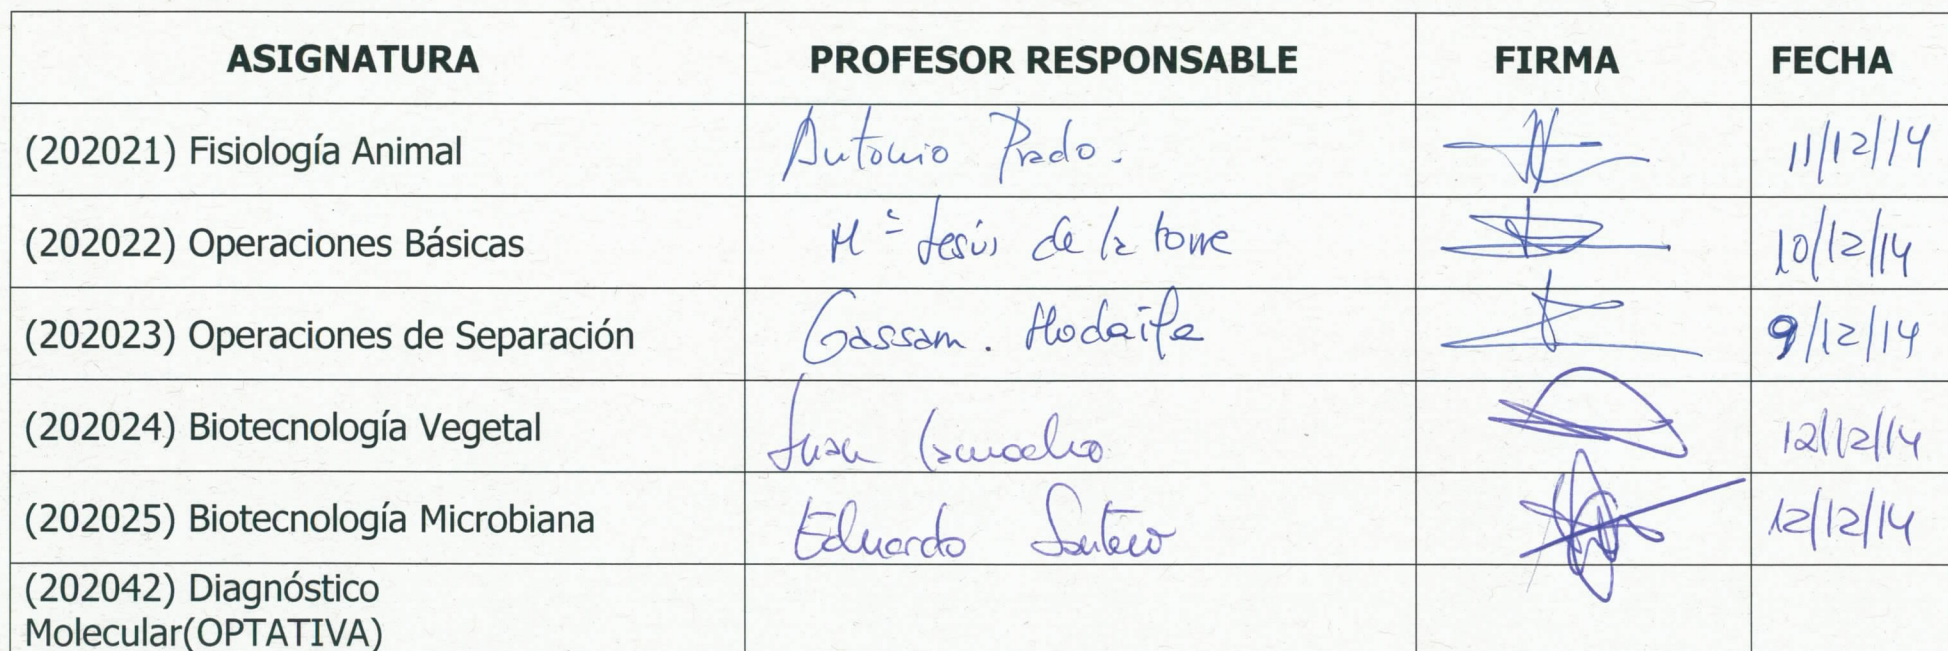 ASIGNATURA PROFESOR RESPONSABLE FIRMA FECHA
(202021) Fisiología Animal Antonio Prado. 11/12/14
(202022) Operaciones Básicas Mª Jesús de la torre 10/12/14
(202023) Operaciones de Separación Gassam. Hodaifa 9/12/14
(202024) Biotecnología Vegetal Juan 12/12/14
(202025) Biotecnología Microbiana Eduardo Santero 12/12/14
(202042) Diagnóstico
Molecular(OPTATIVA)